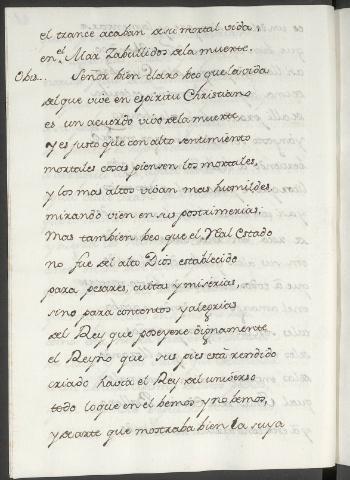 el trance acaban de su mortal vida
en el Mar Zabullidos de la muerte.
Obis... Señor bien claro beo que la vida
del que vive en espiritu Christiano
es un acuerdo vibo de la muerte
y es justo que con alto sentimiento
mortales cosas piensen los mortales,
y los mas altos viban mas humildes
mirando vien en sus postrimerias;
Mas tambien beo que el Rl. Estado
no fue del alto Dios establecido
para pesares, cuitas y miserias,
sino para contentos y alegrias
del Rey que poseyere dignamente
el Reyno que a sus pies está rendido
criado havia el Rey del universo
todo lo que en el bemos y no bemos,
y de arte que mostraba bien la suya